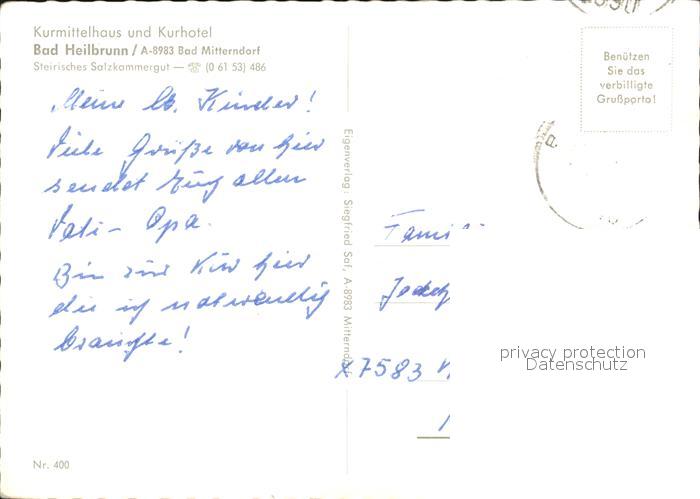 Kurmittelhaus und Kurhotel
Bad Heilbrunn / A-8983 Bad Mitterndorf
Steirisches Salzkammergut — ☎ (0 61 53) 486
Meine lb. Kinder!
Viele Grüße von hier
sendet Euch allen
Vati - Opa.
Bin zur Kur hier
die ich notwendig
brauchte!
Nr. 400
Eigenverlag: Siegfried Sal, A-8983 Mitternd
Benützen
Sie das
verbilligte
Grußporto!
Fami
X7583
privacy protection
Datenschutz